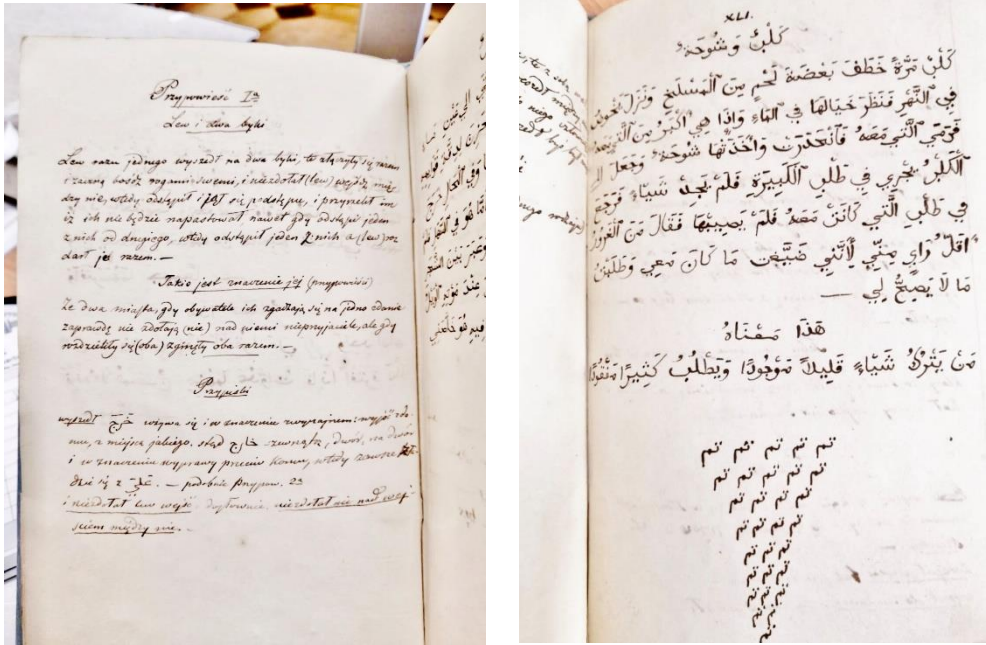 Przypowieść Iª
Lew i dwa byki
Lew razu jednego wyszedł na dwa byki, te złączyły się razem
i zaczęły bość rogami swemi, i niezdołał (lew) wejść mię-
dzy nie, wtedy odstąpił i jął się podstępu, i przyrzekł im
iż ich nie będzie napastował nawet gdy odstąpi jeden
z nich od drugiego, wtedy odstąpił jeden z nich a (lew) poż
arł je razem. —
Takie jest znaczenie jej (przypowieści)
Że dwa miasta, gdy obywatele ich zgadzają się na jedno zdanie
zaprawdę nie zdołają (nie) nad niemi nieprzyjaciele, ale gdy
rozdzieliły się (oba) zginęły oba razem. —
Przypiski
wyszedł خَرَجَ używa się i w znaczeniu zwyczajnem: wyjść
z miejsca jakiego, stąd خارج zewnątrz, dwór, na dwór
i w znaczeniu wyprawy przeciw komu, wtedy zawsze
się z عَلَى. — podobnie Przypow. 23
i niezdołał lew wejść dosłownie: niezdołał nad wej-
ściem między nie. —
XLI.
كَلْبٌ وَشُوحَةٌ
كَلْبٌ مَرَّةً خَطَفَ بَعْضَةَ لَحْمٍ مِنَ ٱلْمَسْلَخِ وَنَزَلَ يَخُوضُ
فِي ٱلنَّهْرِ فَنَظَرَ خَيَالَهَا فِي ٱلْمَاءِ وَإِذَا هِيَ أَكْبَرُ مِنَ ٱلَّتِي مَعَهُ
فَرَمَى ٱلَّتِي مَعَهُ فَٱنْحَدَرَتْ وَأَخَذَتْهَا شُوحَةٌ وَجَعَلَ
ٱلْكَلْبُ يَجْرِي فِي طَلَبِ ٱلْكَبِيرَةِ فَلَمْ يَجِدْ شَيْاءً فَرَجَعَ
فِي طَلَبِ ٱلَّتِي كَانَتْ مَعَهُ فَلَمْ يُصِيبْهَا فَقَالَ مَنِ ٱلْغَرُورُ
أَقَلُّ رَايٍ مِنِّي لِأَنَّنِي ضَيَّعْتُ مَا كَانَ مَعِي وَطَلَبْتُ
مَا لَا يَصِحُّ لِي —
هَذَا مَعْنَاهُ
مَنْ يَتْرُكُ شَيْاءً قَلِيلًا مَوْجُودًا وَيَطْلُبُ كَثِيرًا مَفْقُودًا
تم تم تم تم تم
تم تم تم تم تم
تم تم تم تم
تم تم تم تم
تم تم تم
تم تم تم
تم تم
تم تم
تم